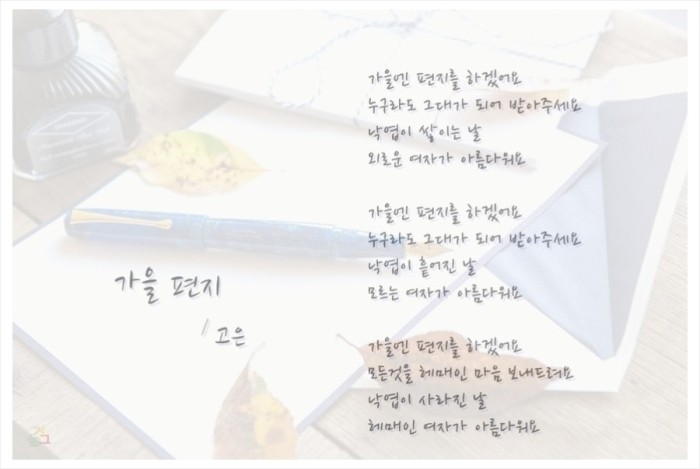 가을 편지
/ 고은
가을엔 편지를 하겠어요
누구라도 그대가 되어 받아주세요
낙엽이 쌓이는 날
외로운 여자가 아름다워요
가을엔 편지를 하겠어요
누구라도 그대가 되어 받아주세요
낙엽이 흩어진 날
모르는 여자가 아름다워요
가을엔 편지를 하겠어요
모든것을 헤매인 마음 보내드려요
낙엽이 사라진 날
헤매인 여자가 아름다워요